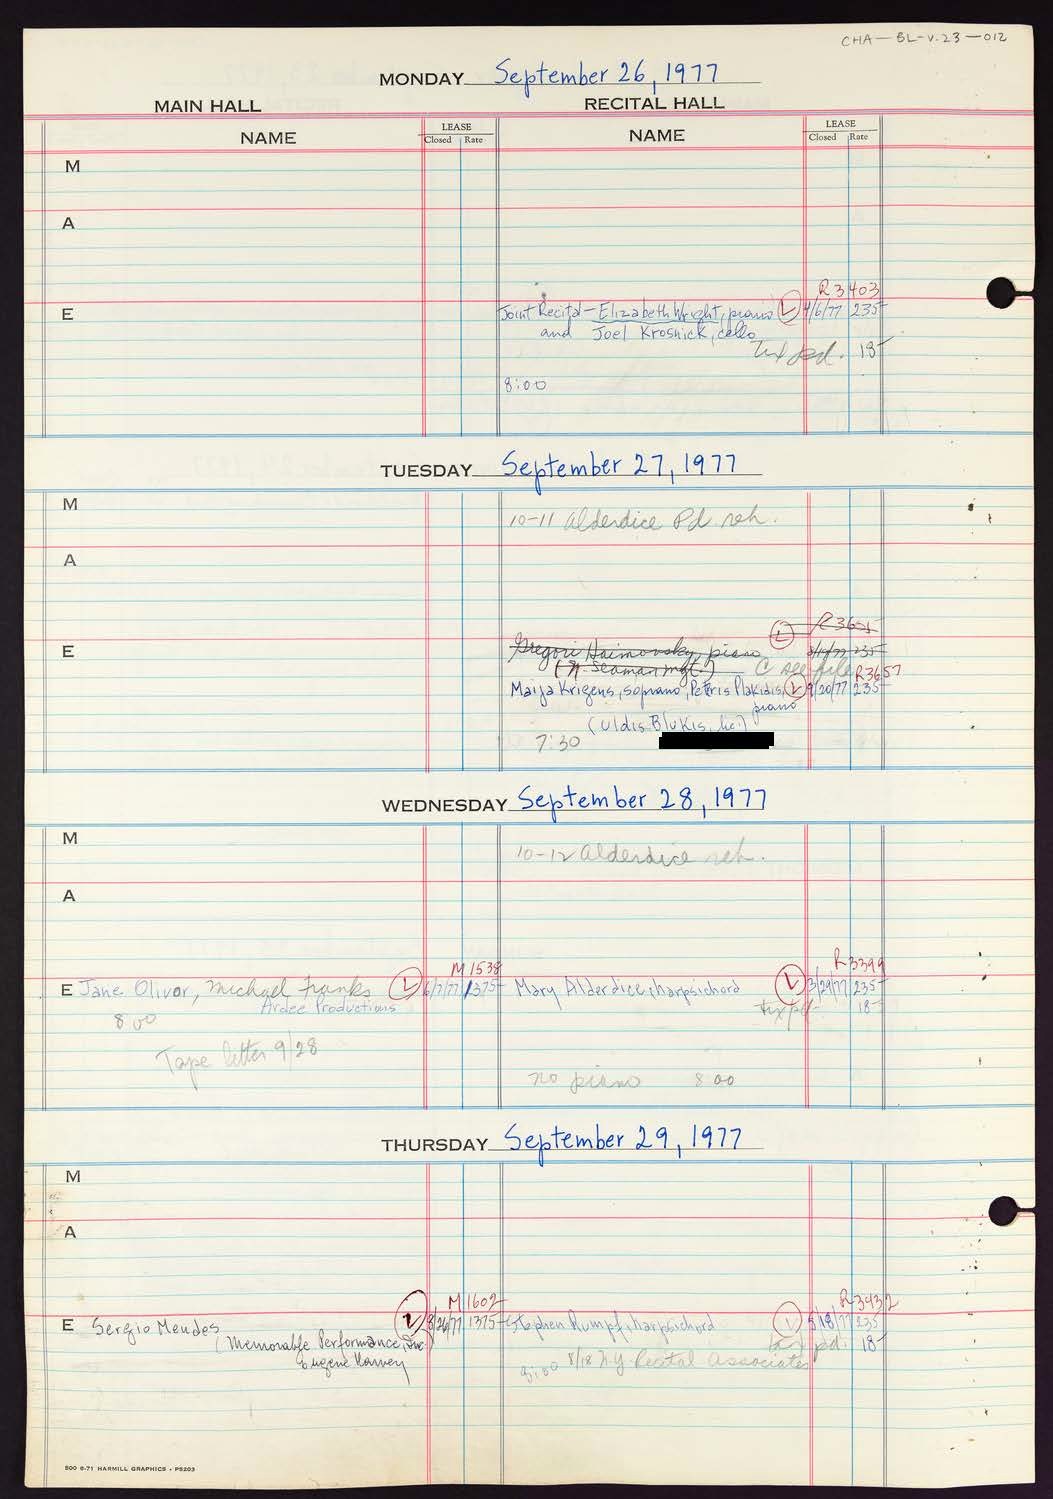 CHA-BL-V.23-012
MONDAY September 26, 1977
MAIN HALL RECITAL HALL
NAME LEASE Closed Rate NAME LEASE Closed Rate
M
A
R3403
E Joint Recital - Elizabeth Wright, piano L 4/6/77 235-
and Joel Krosnick, cello
tax pd. 18-
8:00
TUESDAY September 27, 1977
M
10-11 Alderdice Pd. reh.
A
L R3625
E Gregori Haimovsky, piano 235-
(N. Seaman mgt.) C see file R3657
Maija Krigens, soprano, Petris Plakidis, L 9/20/77 235-
piano
(Uldis Blukis, lic.)
7:30
WEDNESDAY September 28, 1977
M
10-12 Alderdice reh.
A
M1538 R3399
E Jane Olivor, Michael Franks L 6/7/77 1375- Mary Alderdice, harpsichord L 3/29/77 235-
8 00 Ardee Productions tax pd- 18-
Tape letter 9/28
no piano 8 00
THURSDAY September 29, 1977
M
A
M1602 R3432
E Sergio Mendes L 8/26/77 1375- Stephen Rumpf, harpsichord L 5/18/77 235-
(Memorable Performance, Inc.) tax pd. 18-
Eugene Harvey 8:00 8/18 N.Y. Recital Associates
500 6-71 HARMILL GRAPHICS • PS203